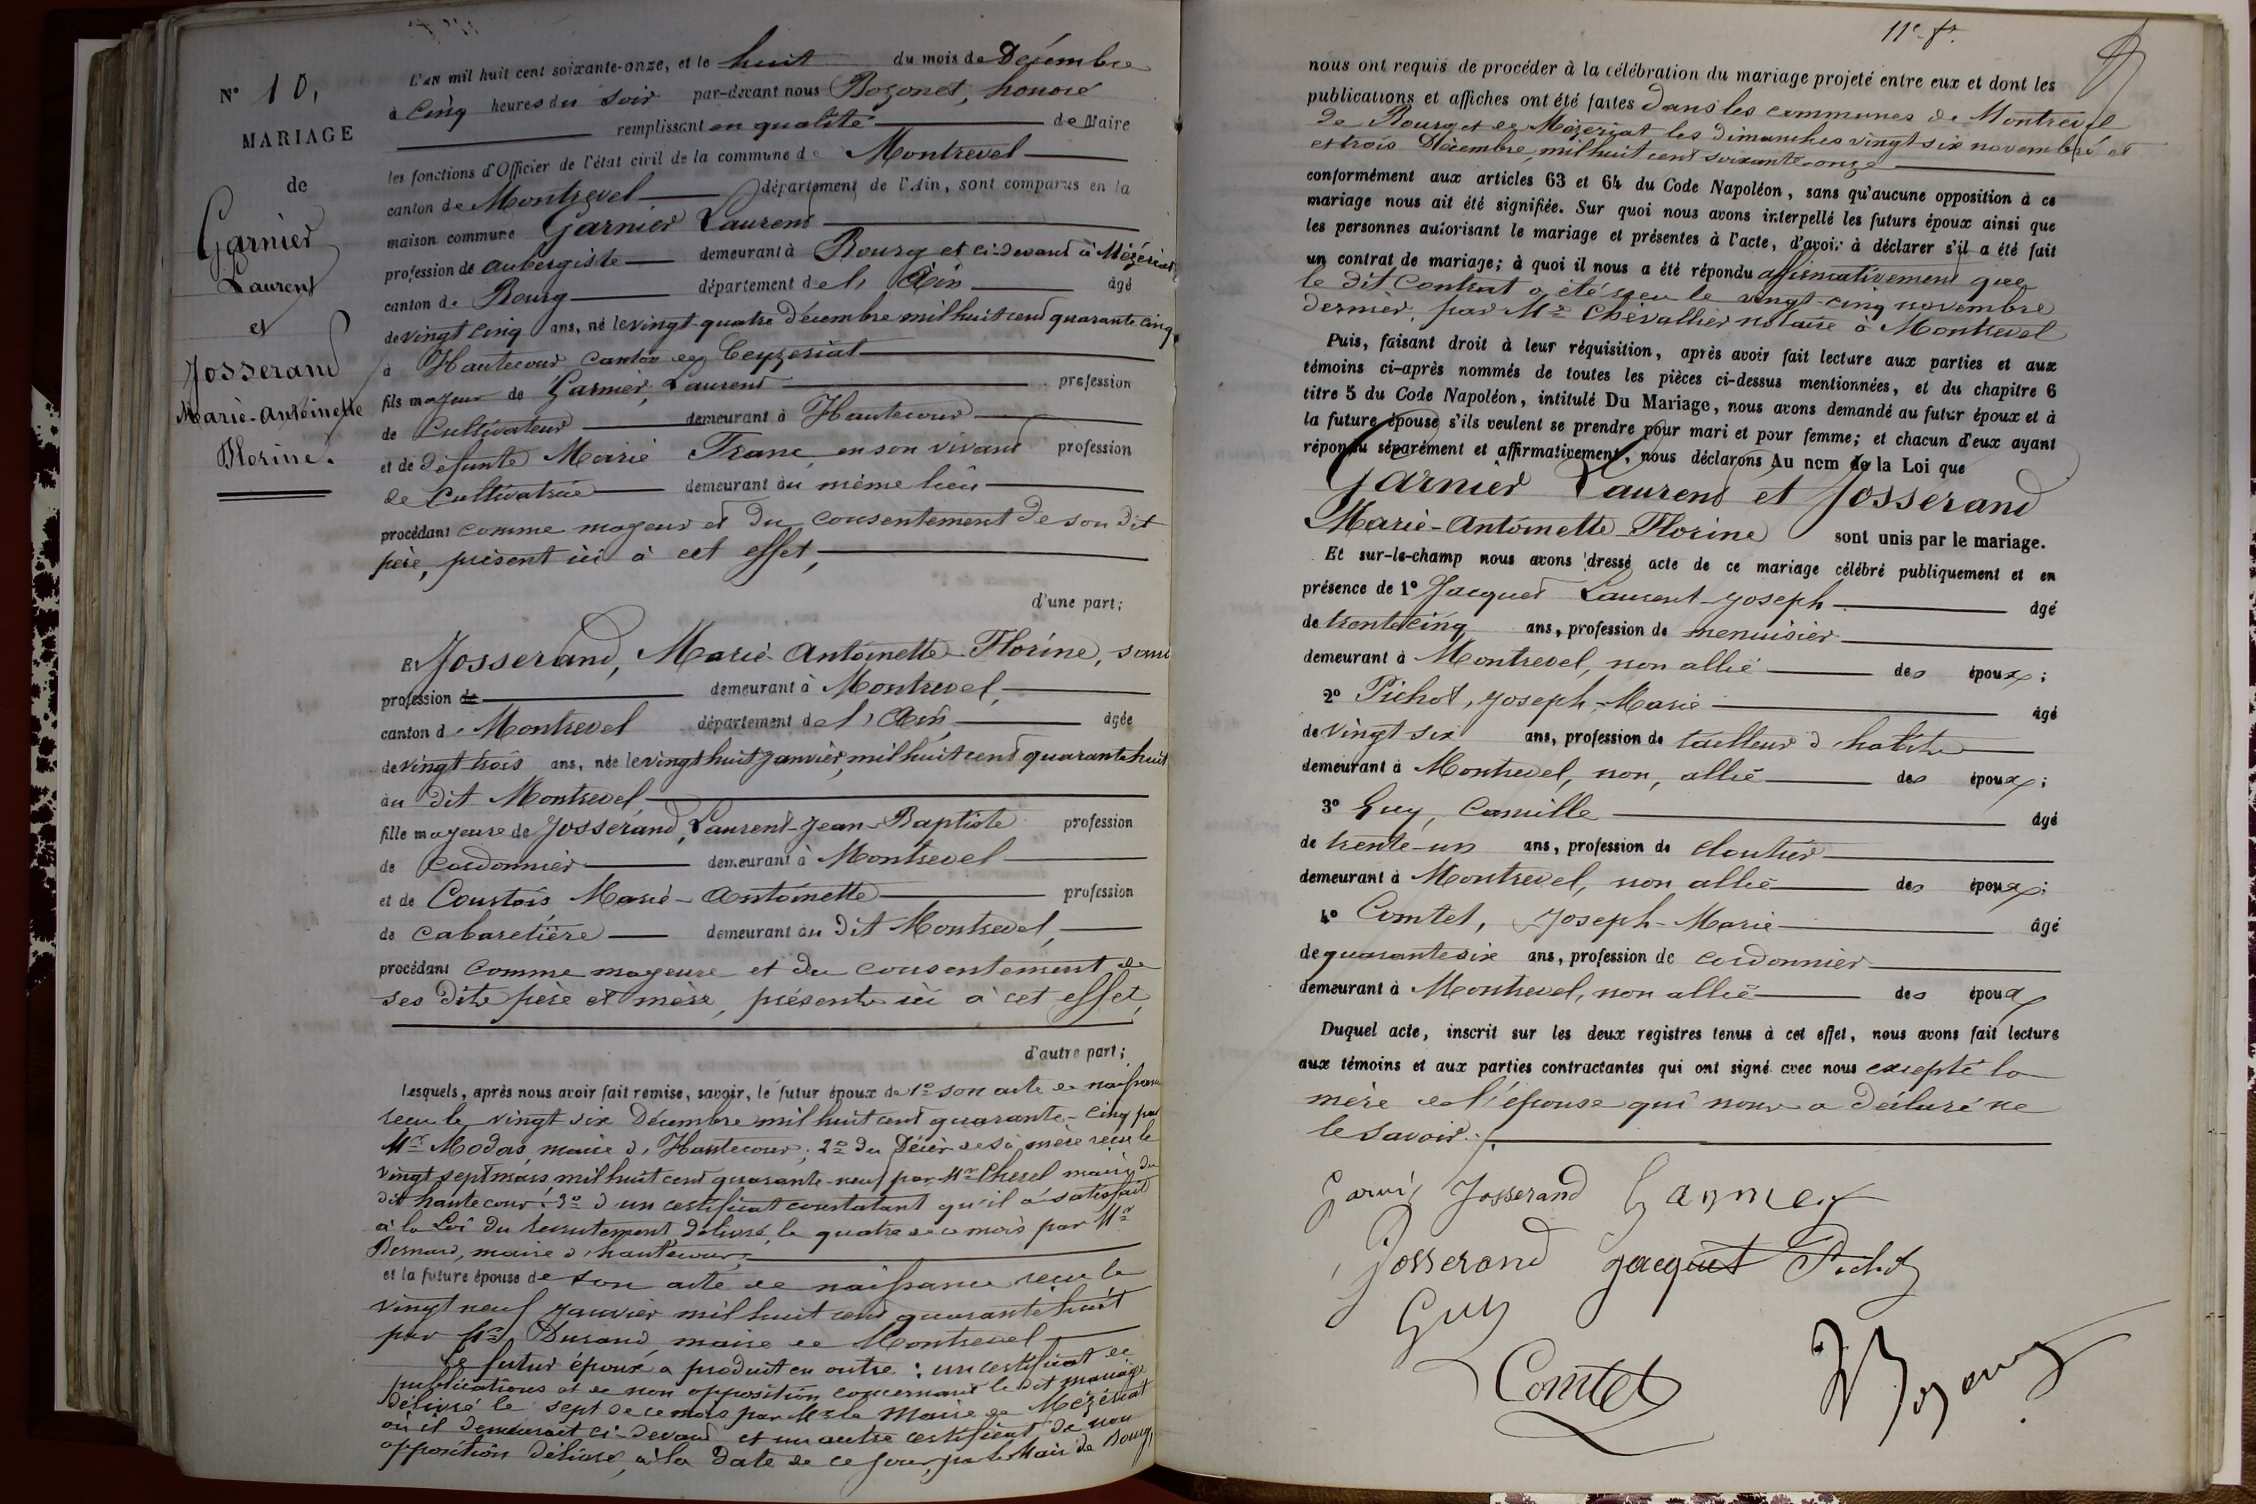 N° 10,
MARIAGE
de
Garnier
Laurent
et
Josserand
Marie-Antoinette
Florine.
L'AN mil huit cent soixante-onze, et le huit du mois de Décembre
à Cinq heures du soir par-devant nous Bozonet, honoré
remplissant en qualité de Maire
les fonctions d'Officier de l'état civil de la commune de Montrevel
canton de Montrevel département de l'Ain, sont comparus en la
maison commune Garnier Laurent
profession de aubergiste demeurant à Bourg et ci-devant à Mézériat
canton de Bourg département de l'Ain âgé
de vingt cinq ans, né le vingt-quatre Décembre mil huit cent quarante cinq
à Hautecour canton de Ceyzeriat
fils majeur de Garnier, Laurent profession
de Cultivateur demeurant à Hautecour
et de défunte Marie Franc en son vivant profession
de Cultivatrice demeurant au même lieu
procédant comme majeur et du consentement de son dit
père, présent ici à cet effet,
d'une part;
Et Josserand, Marie-Antoinette-Florine, sans
profession de demeurant à Montrevel,
canton de Montrevel département de l'Ain âgée
de vingt-trois ans, née le vingt huit janvier, mil huit cent quarante huit
au dit Montrevel
fille majeure de Josserand, Laurent-Jean-Baptiste profession
de Cordonnier demeurant à Montrevel
et de Courtois Marie-Antoinette profession
de cabaretière demeurant au dit Montrevel,
procédant comme majeure et du consentement de
ses dits père et mère, présents ici à cet effet,
d'autre part;
Lesquels, après nous avoir fait remise, savoir, le futur époux de 1° son acte de naissance
reçu le vingt six Décembre mil huit cent quarante-cinq par
Mr Modas, maire d'Hautecour; 2° du Décès de sa mère reçu le
vingt sept mars mil huit cent quarante-neuf par Mr Chevel maire du
dit hautecour; 3° d'un certificat constatant qu'il a satisfait
à la Loi du recrutement délivré, le quatre de ce mois par Mr
Bernard, maire d'hautecour;
et la future épouse de son acte de naissance reçu le
vingt neuf janvier mil huit cent quarante huit
par Mr Durand, maire de Montrevel
Le futur époux a produit en outre: un certificat de
publications et de non opposition concernant le dit mariage
délivré le sept de ce mois par Mr le Maire de Mézériat
où il demeurait ci-devant et un autre certificat de non
opposition délivré, à la date de ce jour, par le Maire de Bourg,
11e ft
nous ont requis de procéder à la célébration du mariage projeté entre eux et dont les
publications et affiches ont été faites dans les communes de Montrevel
de Bourg et de Mézériat les dimanches vingt six novembre et
et trois Décembre, mil huit cent soixante-onze
conformément aux articles 63 et 64 du Code Napoléon, sans qu'aucune opposition à ce
mariage nous ait été signifiée. Sur quoi nous avons interpellé les futurs époux ainsi que
les personnes autorisant le mariage et présentes à l'acte, d'avoir à déclarer s'il a été fait
un contrat de mariage; à quoi il nous a été répondu affirmativement que
le dit Contrat a été reçu le vingt-cinq novembre
dernier, par Mr Chevallier notaire à Montrevel
Puis, faisant droit à leur réquisition, après avoir fait lecture aux parties et aux
témoins ci-après nommés de toutes les pièces ci-dessus mentionnées, et du chapitre 6
titre 5 du Code Napoléon, intitulé Du Mariage, nous avons demandé au futur époux et à
la future épouse s'ils veulent se prendre pour mari et pour femme; et chacun d'eux ayant
répondu séparément et affirmativement, nous déclarons Au nom de la Loi que
Garnier Laurent et Josserand
Marie-Antoinette-Florine sont unis par le mariage.
Et sur-le-champ nous avons dressé acte de ce mariage célébré publiquement et en
présence de 1° Jacquet Laurent-Joseph âgé
de trente cinq ans, profession de menuisier
demeurant à Montrevel, non allié des époux;
2° Pichot, Joseph-Marie âgé
de vingt six ans, profession de tailleur d'habits
demeurant à Montrevel, non, allié des époux;
3° Guy, Camille âgé
de trente-un ans, profession de cloutier
demeurant à Montrevel, non allié des époux;
4° Comtet, Joseph-Marie âgé
de quarante six ans, profession de cordonnier
demeurant à Montrevel, non allié des époux
Duquel acte, inscrit sur les deux registres tenus à cet effet, nous avons fait lecture
aux témoins et aux parties contractantes qui ont signé avec nous excepté la
mère de l'épouse qui nous a déclaré ne
le savoir.
Josserand Garnier
Josserand Jacquet Pichot
Guy
Comtet